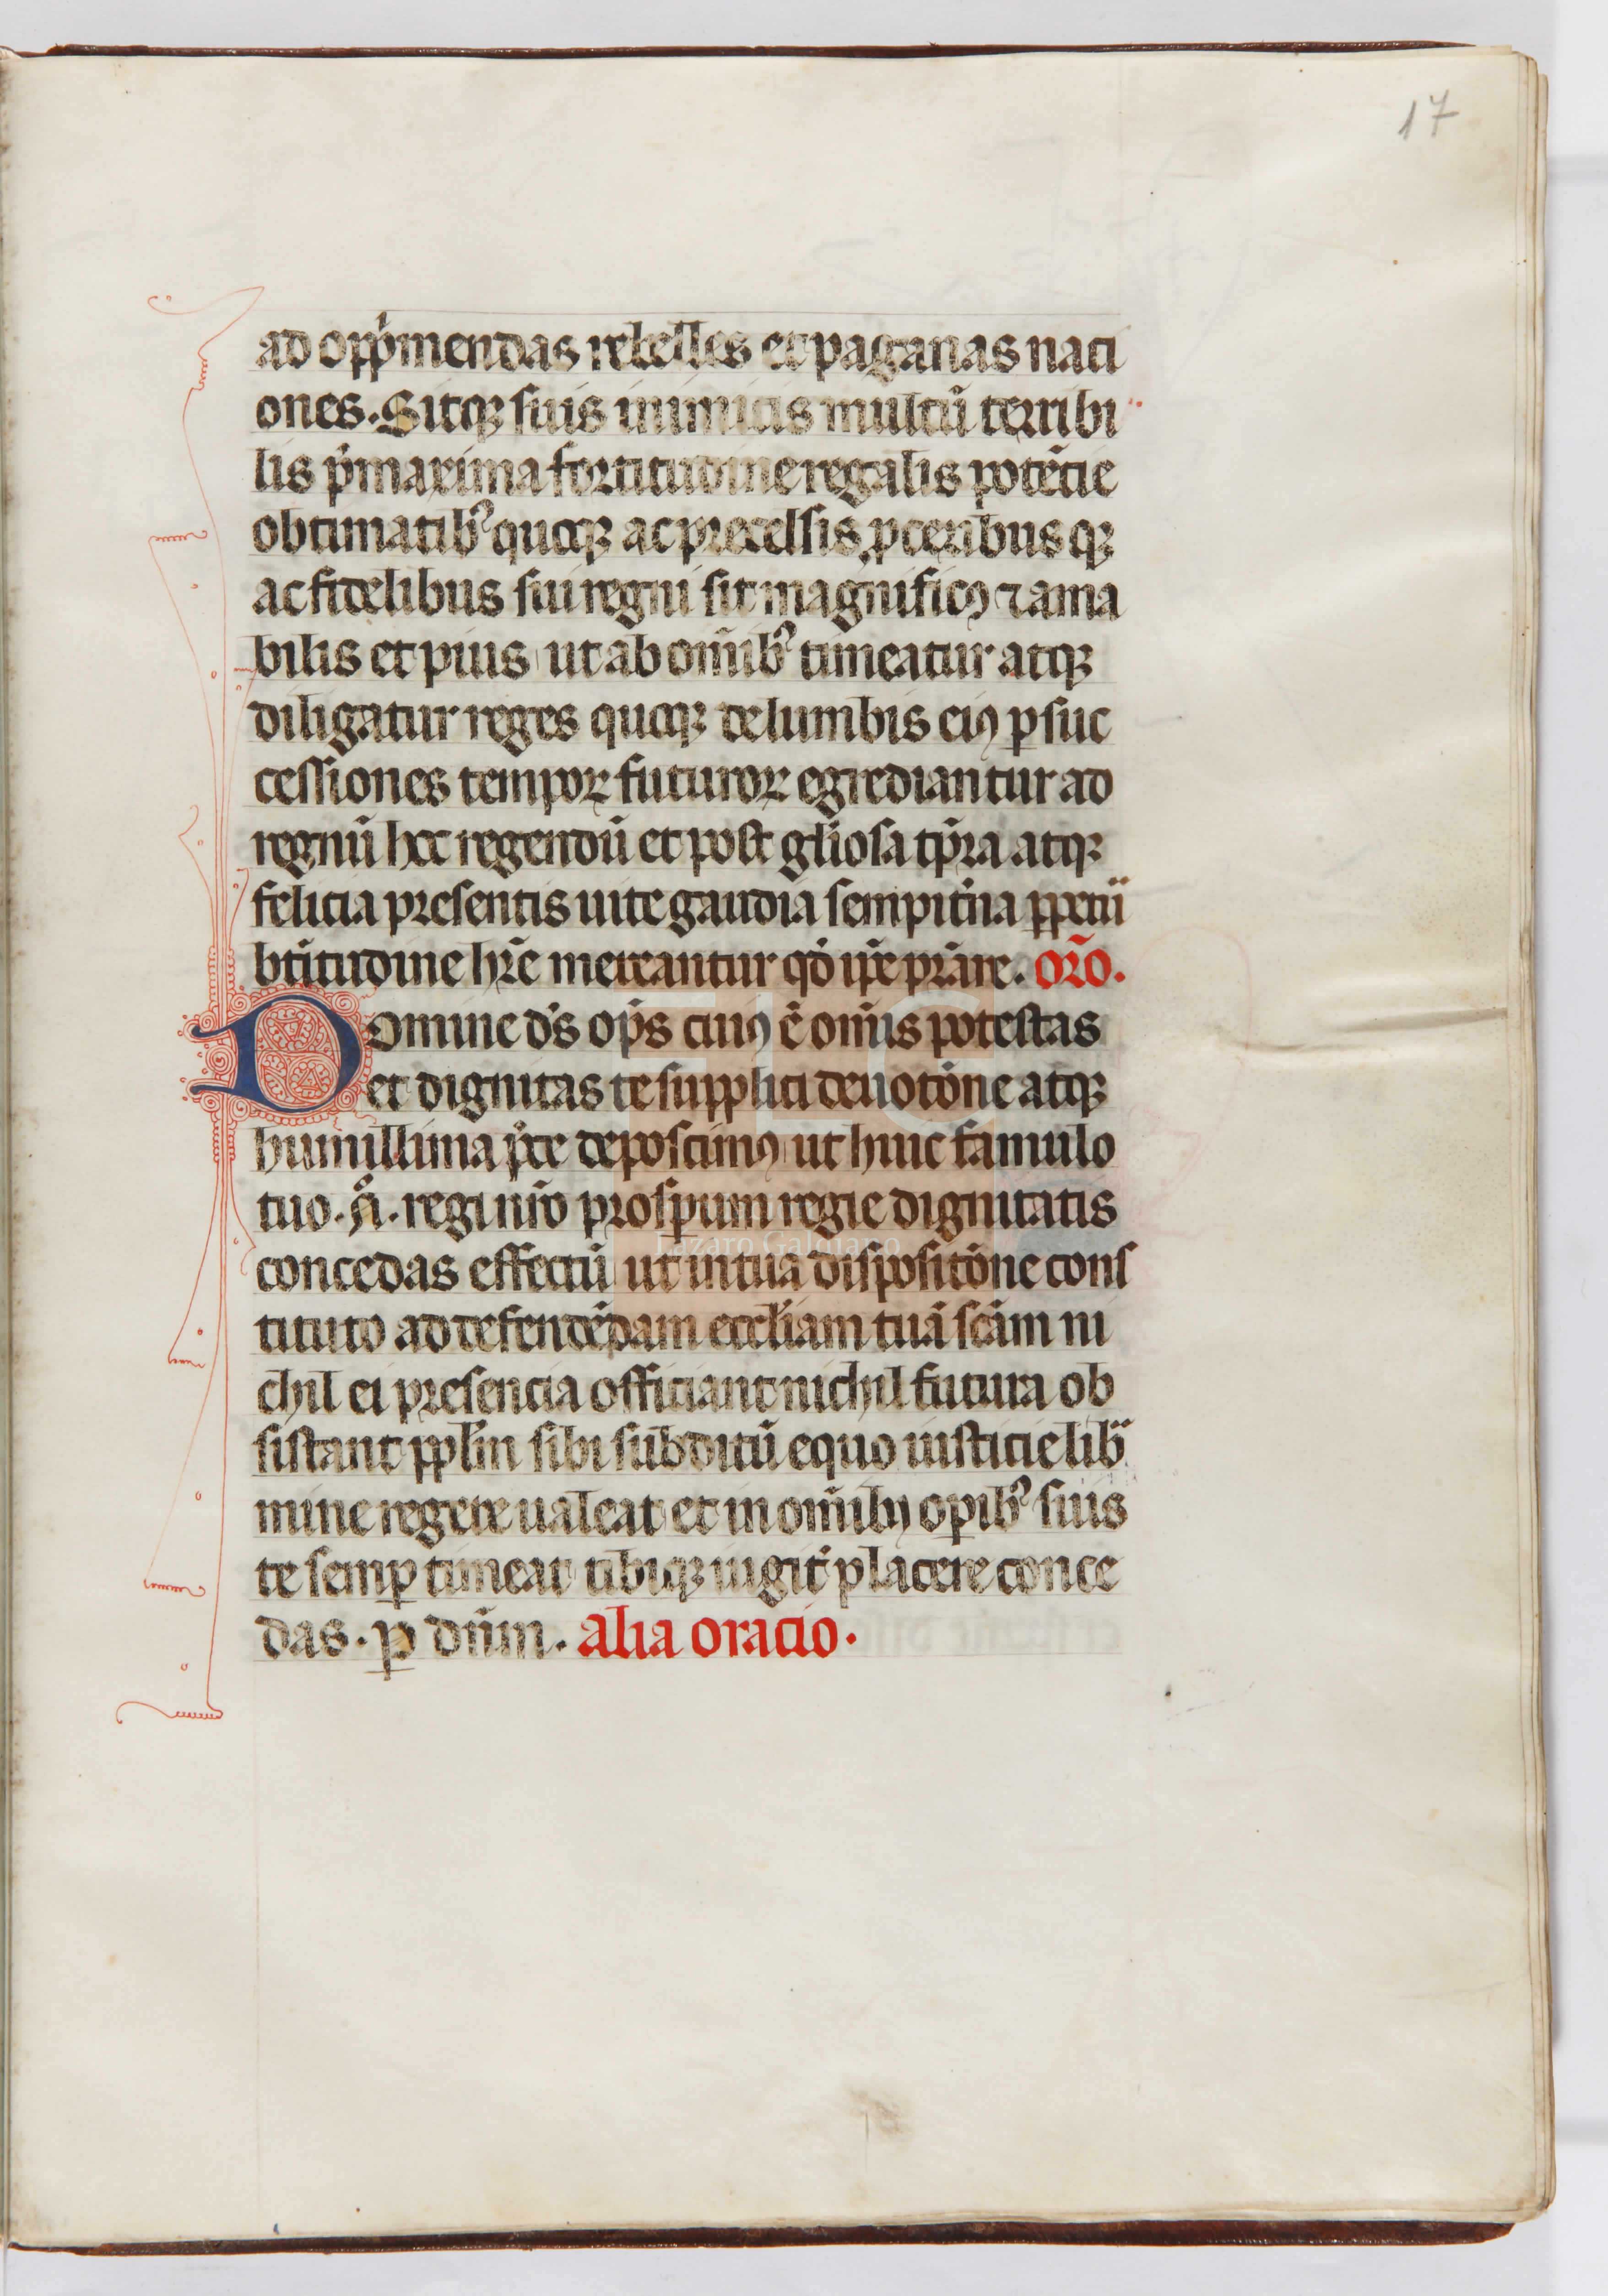 17
ad opp̃mendas rebelles et paganas naci
ones. Sitqꝫ suis inimicis multũ terribi
lis p̃ maxima fortitudine regalis potẽcie
obtimatibꝰ quoqꝫ ac precelsis ꝓceribus qꝫ
ac fidelibus sui regni sit magnificꝰ ⁊ ama
bilis et pius ut ab om̃ibꝰ timeatur atqꝫ
diligatur reges quoqꝫ de lumbis eiꝰ ꝑ suc
cessiones tempoꝝ futuroꝝ egrediantur ad
regnũ hoc regendũ et post gl̃iosa tp̃ra atqꝫ
felicia presentis uite gaudia sempit̃na ꝑpetũ
bt̃itudine hr̃e mereantur qd̃ ip̃e prãre. or̃o.
Domine ds̃ op̃s cuiꝰ ẽ om̃is potestas
et dignitas te supplici deuotõne atqꝫ
humillima p̃ce deposcimꝰ ut huic famulo
tuo. A. regi nr̃o prosꝑum regie dignitatis
concedas effectũ ut in tua dispositõne cons
tituto ad defendẽdam eccl̃iam tuã scãm ni
chil ei presencia officiant nichil futura ob
sistant ppl̃m sibi subditũ equo iusticie lib̃
mine regere ualeat et in om̃ibꝰ oꝑibꝰ suis
te semꝑ timeat tibiqꝫ iugit̃ placere conce
das. ꝑ dñm. alia oracio.
Lázaro Galdiano